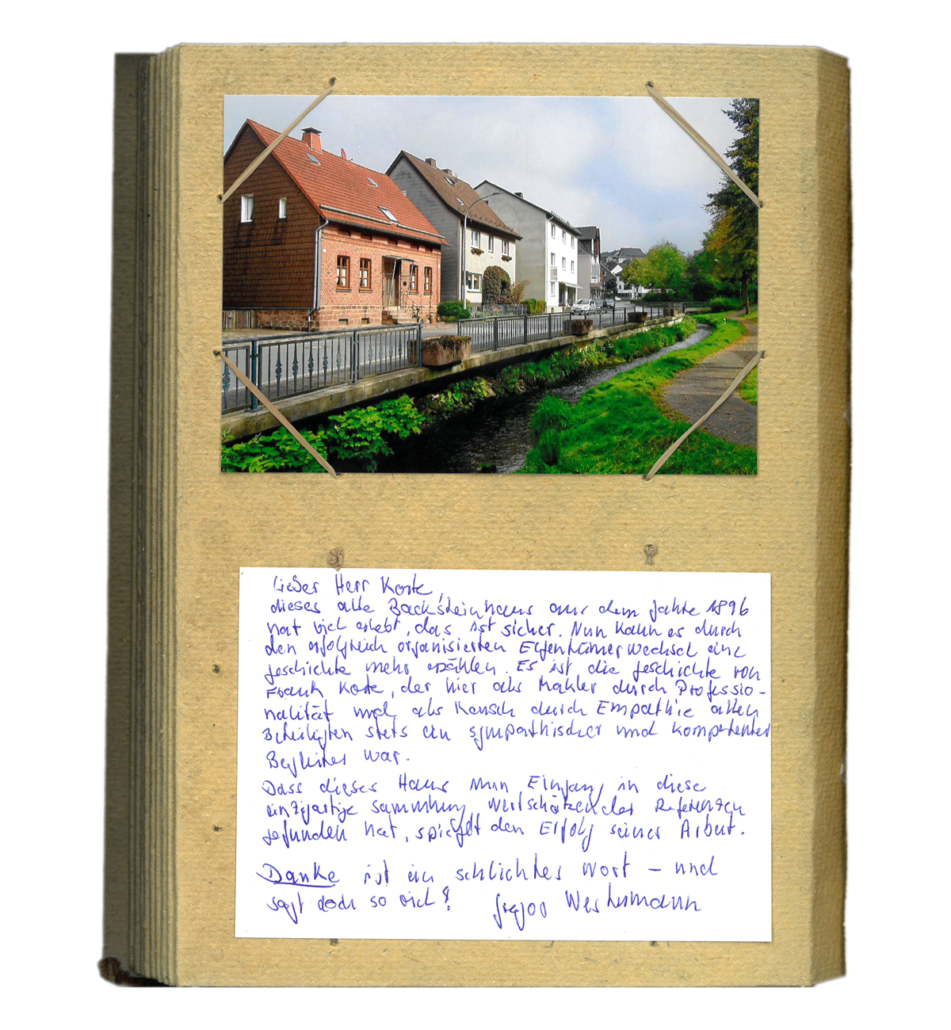 Lieber Herr Korte,
dieses alte Backsteinhaus aus dem Jahre 1896
hat viel erlebt, das ist sicher. Nun kann es durch
den erfolgreich organisierten Eigentümerwechsel eine
Geschichte mehr erzählen. Es ist die Geschichte von
Frank Korte, der hier als Makler durch Professio-
nalität und als Mensch durch Empathie allen
Beteiligten stets ein sympathischer und kompetenter
Begleiter war.
Dass dieses Haus nun Eingang in diese
einzigartige Sammlung wertschätzender Referenzen
gefunden hat, spiegelt den Erfolg seiner Arbeit.
Danke ist ein schlichtes Wort – und
sagt doch so viel!
Gregor